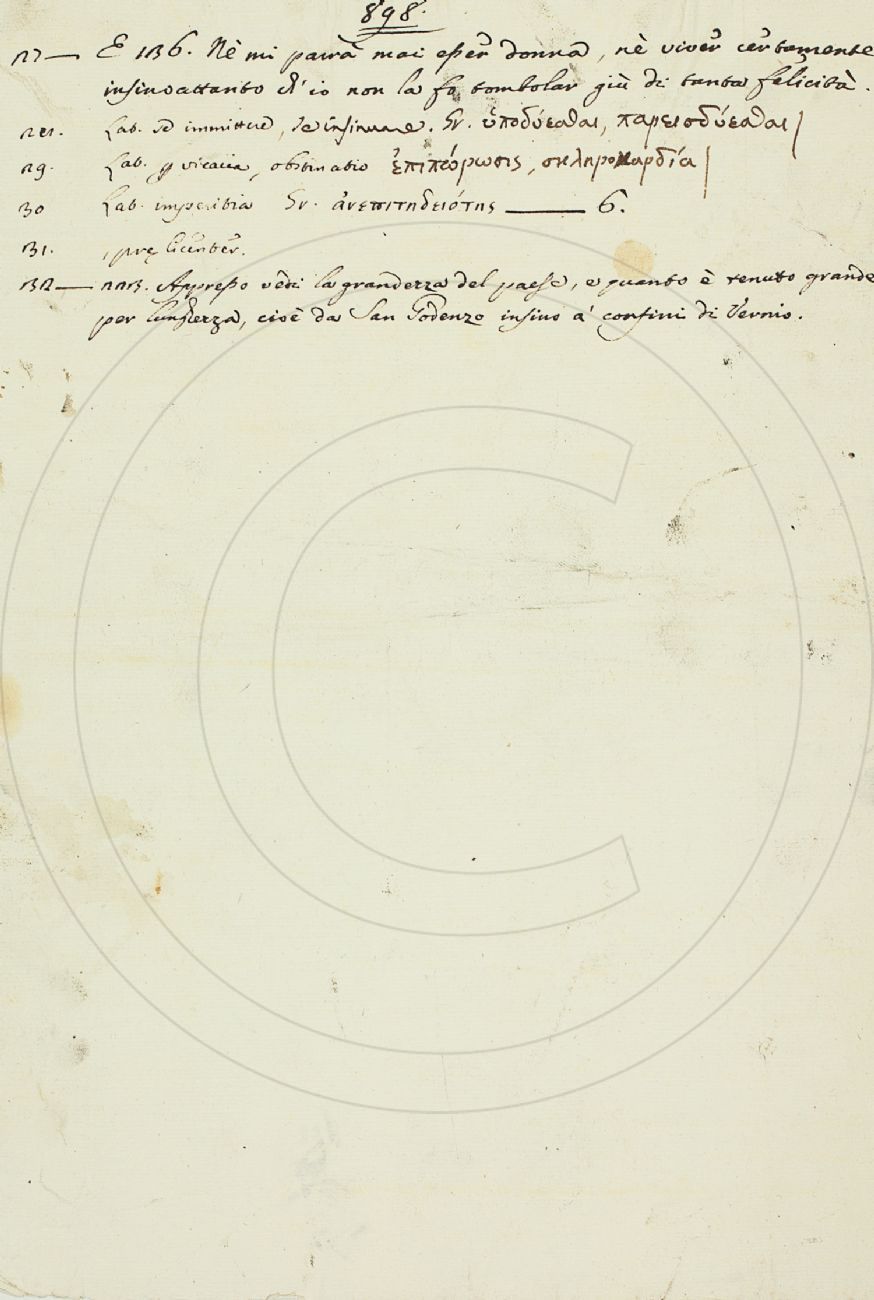 898.
27— E 136. Nè mi parrà mai esser donna, nè viver certamente
insinoattanto ch'io non la fo tombolar giù di tanta felicità.
281. Lat. se immittere, se insinuare. Gr. ὑποδύεσθαι, παρεισδύεσθαι|
29. Lat. pvicacia, obstinatio ἐπιπώρωσις, σκληροκαρδία|
30 Lat. imperitia Gr. ἀνεπιτηδειότης —— 6.
31.
132— 113. Appresso vedi la grandezza del paese, e quanto è tenuto grande
per lunghezza, cioè da San Godenzo insino a' confini di Vernio.